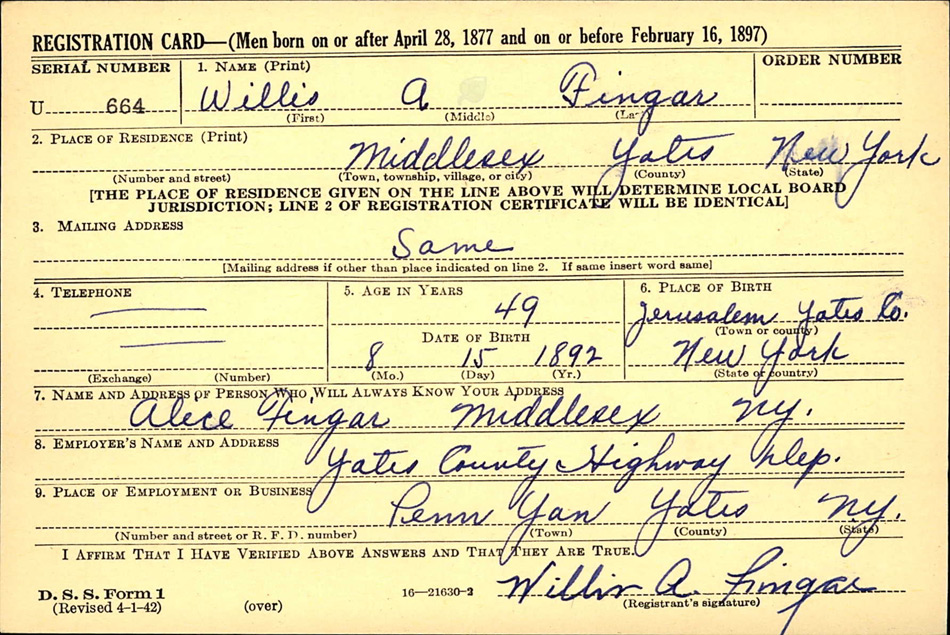 REGISTRATION CARD—(Men born on or after April 28, 1877 and on or before February 16, 1897)
SERIAL NUMBER 1. NAME (Print) ORDER NUMBER
U 664 Willis A Fingar
(First) (Middle) (Last)
2. PLACE OF RESIDENCE (Print)
Middlesex Yates New York
(Number and street) (Town, township, village, or city) (County) (State)
[THE PLACE OF RESIDENCE GIVEN ON THE LINE ABOVE WILL DETERMINE LOCAL BOARD
JURISDICTION; LINE 2 OF REGISTRATION CERTIFICATE WILL BE IDENTICAL]
3. MAILING ADDRESS
Same
[Mailing address if other than place indicated on line 2. If same insert word same]
4. TELEPHONE 5. AGE IN YEARS 6. PLACE OF BIRTH
49 Jerusalem Yates Co.
(Town or county)
DATE OF BIRTH
8 15 1892 New York
(Exchange) (Number) (Mo.) (Day) (Yr.) (State or country)
7. NAME AND ADDRESS OF PERSON WHO WILL ALWAYS KNOW YOUR ADDRESS
Alice Fingar Middlesex N.Y.
8. EMPLOYER'S NAME AND ADDRESS
Yates County Highway Dep.
9. PLACE OF EMPLOYMENT OR BUSINESS
Penn Yan Yates N.Y.
(Number and street or R. F. D. number) (Town) (County) (State)
I AFFIRM THAT I HAVE VERIFIED ABOVE ANSWERS AND THAT THEY ARE TRUE.
D. S. S. Form 1
(Revised 4-1-42) (over) 16—21630-2 Willis A. Fingar
(Registrant's signature)